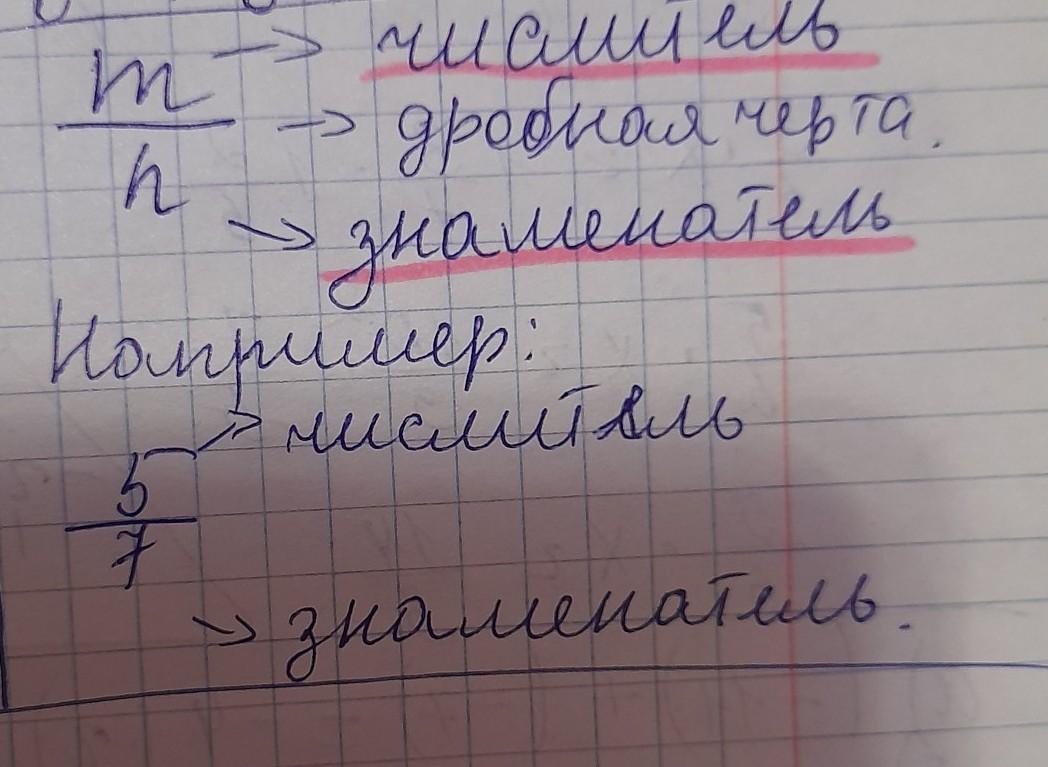 m → числитель
→ дробная черта.
n
→ знаменатель
Например:
→ числитель
5
7
→ знаменатель.